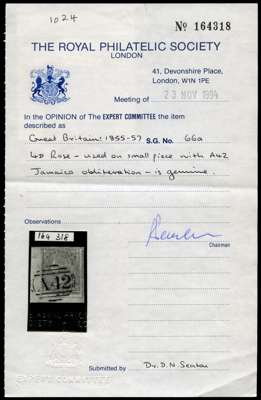 1024
No 164318
THE ROYAL PHILATELIC SOCIETY
LONDON
41, Devonshire Place,
London, W1N 1PE
Meeting of 23 NOV 1994
In the OPINION of The EXPERT COMMITTEE the item
described as
Great Britain: 1855-57 S.G. No. 66a
4D Rose - used on small piece with A42
Jamaica obliteration - is genuine.
Observations
164 318
A42
Chairman
EXPERT COMMITTEE
Submitted by Dr. D.N.